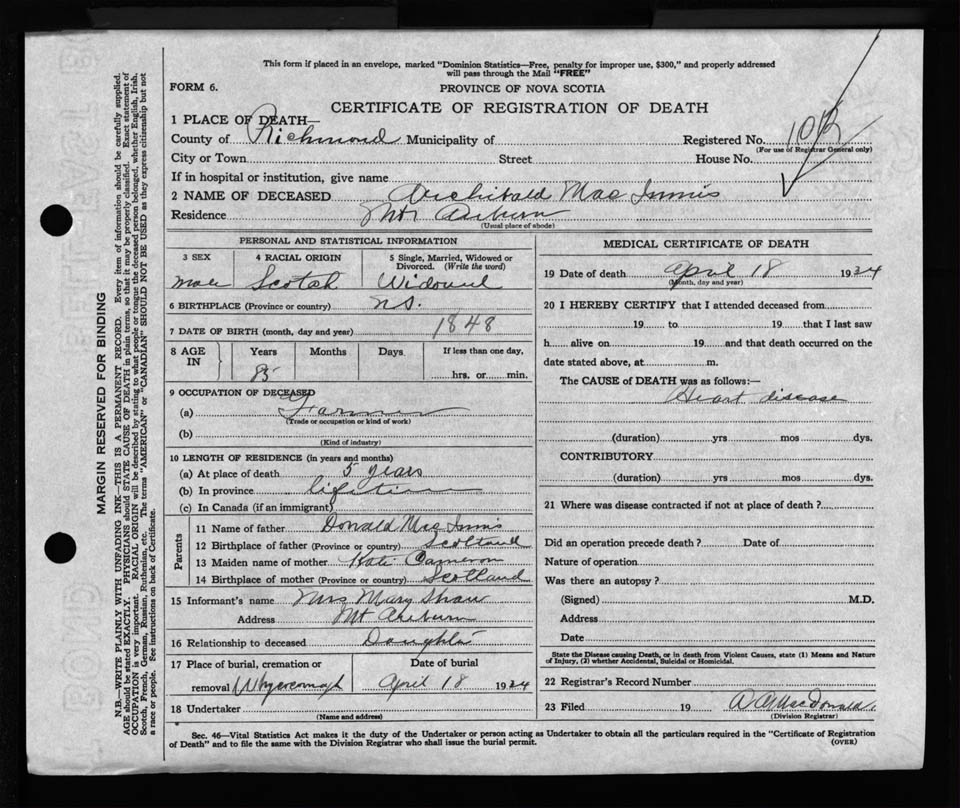 This form if placed in an envelope, marked "Dominion Statistics—Free, penalty for improper use, $300," and properly addressed
will pass through the Mail "FREE"
FORM 6.
PROVINCE OF NOVA SCOTIA
CERTIFICATE OF REGISTRATION OF DEATH
1 PLACE OF DEATH—
County of Richmond Municipality of Registered No.
(For use of Registrar General only)
City or Town Street House No.
If in hospital or institution, give name
2 NAME OF DECEASED Archibald Mac Innis
Residence Mt Auburn
(Usual place of abode)
PERSONAL AND STATISTICAL INFORMATION
3 SEX 4 RACIAL ORIGIN 5 Single, Married, Widowed or Divorced. (Write the word)
Male Scotch Widowed
6 BIRTHPLACE (Province or country) N.S.
7 DATE OF BIRTH (month, day and year) 1848
8 AGE IN Years Months Days If less than one day,
85 hrs. or min.
9 OCCUPATION OF DECEASED
(a) Farmer
(Trade or occupation or kind of work)
(b)
(Kind of industry)
10 LENGTH OF RESIDENCE (in years and months)
(a) At place of death 5 years
(b) In province lifetime
(c) In Canada (if an immigrant)
Parents
11 Name of father Donald Mac Innis
12 Birthplace of father (Province or country) Scotland
13 Maiden name of mother Kate Cameron
14 Birthplace of mother (Province or country) Scotland
15 Informant's name Mrs Mary Shaw
Address Mt Auburn
16 Relationship to deceased Daughter
17 Place of burial, cremation or Date of burial
removal Whycocomagh April 18 1934
18 Undertaker
(Name and address)
MEDICAL CERTIFICATE OF DEATH
19 Date of death April 18 1934
(Month, day and year)
20 I HEREBY CERTIFY that I attended deceased from
19 to 19 that I last saw
h alive on 19 and that death occurred on the
date stated above, at m.
The CAUSE of DEATH was as follows:—
Heart disease
(duration) yrs mos dys.
CONTRIBUTORY
(duration) yrs mos dys.
21 Where was disease contracted if not at place of death?
Did an operation precede death? Date of
Nature of operation
Was there an autopsy?
(Signed) M.D.
Address
Date
State the Disease causing Death, or in death from Violent Causes, state (1) Means and Nature
of Injury, (2) whether Accidental, Suicidal or Homicidal.
22 Registrar's Record Number
23 Filed 19 MacDonald
(Division Registrar)
Sec. 46—Vital Statistics Act makes it the duty of the Undertaker or person acting as Undertaker to obtain all the particulars required in the "Certificate of Registration
of Death" and to file the same with the Division Registrar who shall issue the burial permit.
(OVER)
MARGIN RESERVED FOR BINDING
N.B.—WRITE PLAINLY WITH UNFADING INK—THIS IS A PERMANENT RECORD. Every item of information should be carefully supplied.
AGE should be stated EXACTLY. PHYSICIANS should STATE CAUSE OF DEATH in plain terms, so that it may be properly classified. Exact statement of
OCCUPATION is very important. RACIAL ORIGIN will be described by stating to what people or tongue the deceased person belonged, whether English, Irish,
Scotch, French, German, Russian, Ruthenian, etc. The terms "AMERICAN" or "CANADIAN" SHOULD NOT BE USED as they express citizenship but not
a race or people. See instructions on back of Certificate.